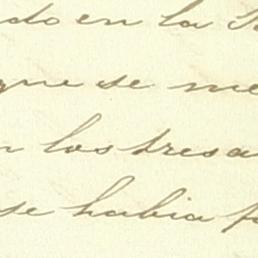 do en la
que se me
los tres a
se habia